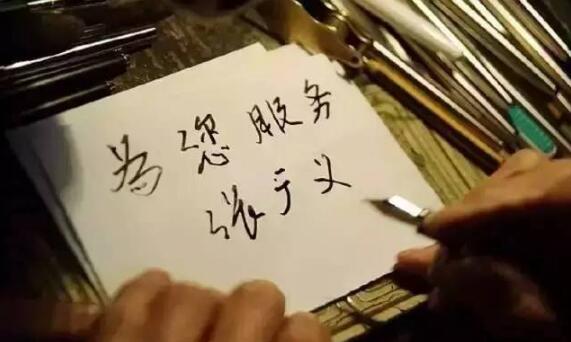 为您服务
张广义